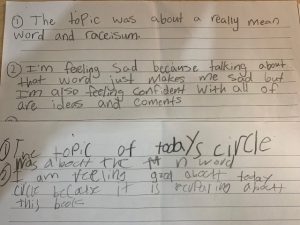 ① The topic was about a really mean
word and raceisum.
② I'm feeling sad because talking about
that word just makes me sad but
I'm also feeling confident with all of
are ideas and coments
① The topic of todays circle
was aboutt the n word
I am feeling good aboutt today
circle because it is aboutt
this